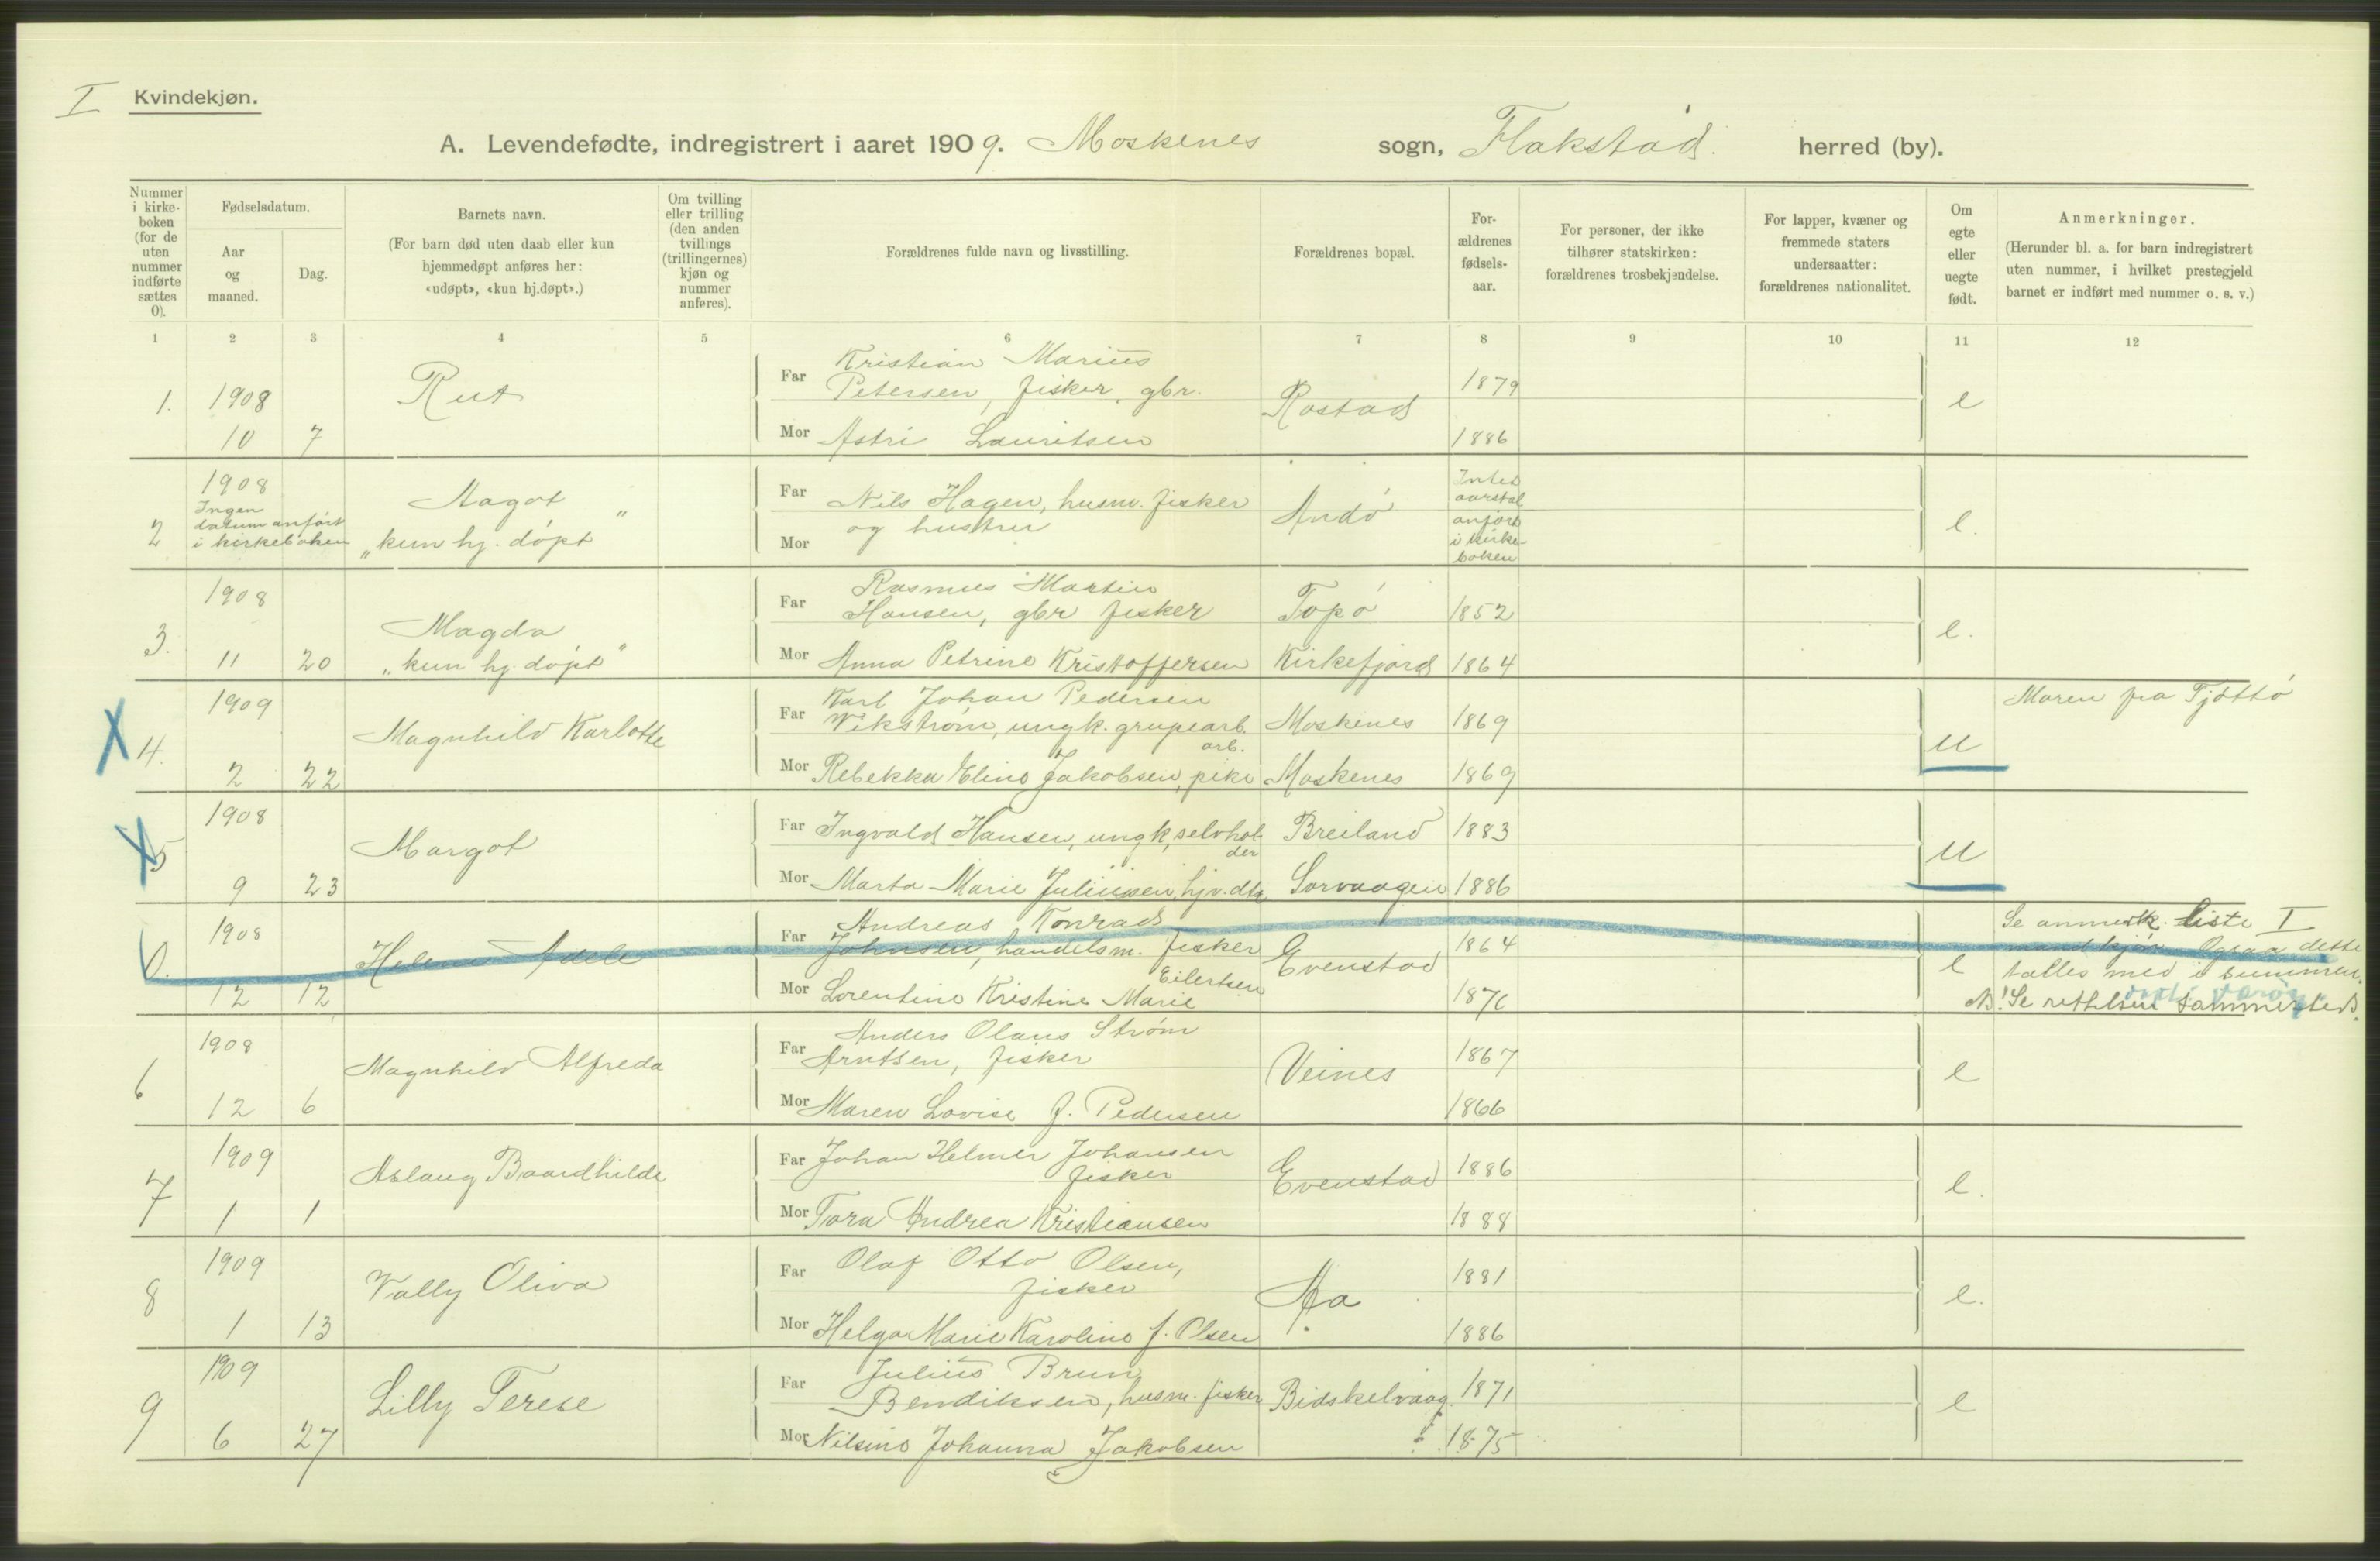 I Kvindekjøn.
A. Levendefødte, indregistrert i aaret 1909. Moskenes sogn, Flakstad. herred (by).
Nummer i kirke-boken (for de uten nummer indførte sættes 0).
Fødselsdatum.
Aar og maaned.
Dag.
Barnets navn.
(For barn død uten daab eller kun hjemmedøpt anføres her: «udøpt», «kun hj.døpt».)
Om tvilling eller trilling (den anden tvillings (trillingernes) kjøn og nummer anføres).
Forældrenes fulde navn og livsstilling.
Forældrenes bopæl.
For-ældrenes fødsels-aar.
For personer, der ikke tilhører statskirken: forældrenes trosbekjendelse.
For lapper, kvæner og fremmede staters undersaatter: forældrenes nationalitet.
Om egte eller uegte født.
Anmerkninger.
(Herunder bl. a. for barn indregistrert uten nummer, i hvilket prestegjeld barnet er indført med nummer o. s. v.)
1 2 3 4 5 6 7 8 9 10 11 12
1. 1908 10 7 Rut
Far Kristian Marius
Petersen, fisker, gbr. Rostad 1879 e
Mor Astri Lauritsen 1886
2 1908 Ingen datum anført i kirkeboken
Aagot
"kun hj. døpt"
Far Nils Hagen, husm. fisker
og hustru
Mor
Andø
Intet aarstal anført i kirke-boken
e.
3. 1908 11 20 Magda
"kun hj. døpt"
Far Rasmus Martin
Hansen, gbr fisker Topø 1852 e.
Mor Anna Petrine Kristoffersen Kirkefjord 1864
X 4. 1909 2 22 Magnhild Karlotte
Far Karl Johan Pedersen
Vikstrøm, ungk. grupearb. Moskenes 1869 u
arb.
Mor Rebekka Eline Jakobsen, pike Moskenes 1869
Moren fra Tjøttø
X 5 1908 9 23 Margot
Far Ingvald Hansen, ungk, selvhol-
der Breiland 1883 u
Mor Marta Marie Juliussen, hj.v. dtr Sorvaagen 1886
0. 1908 12 12 Helene Adele
Far Andreas Konrad
Johnsen, handelsm. fisker Evenstad 1864 e
Mor Lorentine Kristine Marie Eilertsen
Se anmerk. liste I
mandkjøn. Ogsaa dette
tælles med i summen.
NB! Se rettelsen sammesteds.
6 1908 12 6 Magnhild Alfreda
Far Anders Olaus Strøm
Arntsen, fisker Veines 1867 e
Mor Maren Lovise f. Pedersen 1866
7 1909 1 1 Aslaug Baardhilde
Far Johan Helmer Johansen
fisker Evenstad 1886 e.
Mor Tora Andrea Kristiansen 1888
8 1909 1 13 Vally Oliva
Far Olaf Otto Olsen,
fisker Aa 1881 e.
Mor Helga Marie Karoline f. Olsen 1886
9 1909 6 27 Lilly Terese
Far Julius Brun
Bendiksen, husm. fisker Bidskelvaag 1871 e
Mor Nilsine Johanna Jakobsen 1875